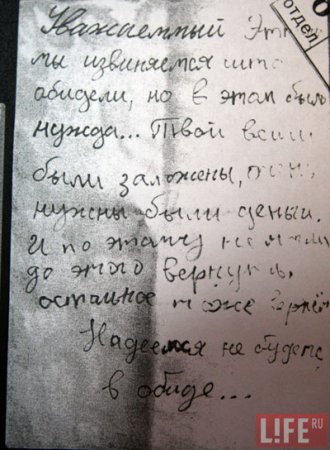 Уважаемый
мы извиняемся што
обидели, но в этом была
нужда... Твои вещи
были заложены,
нужны были деньги.
И по этому не могли
до этого вернуть,
остальное тоже вернём
Надеемся не будете
в обиде...
отдел
LIFE RU